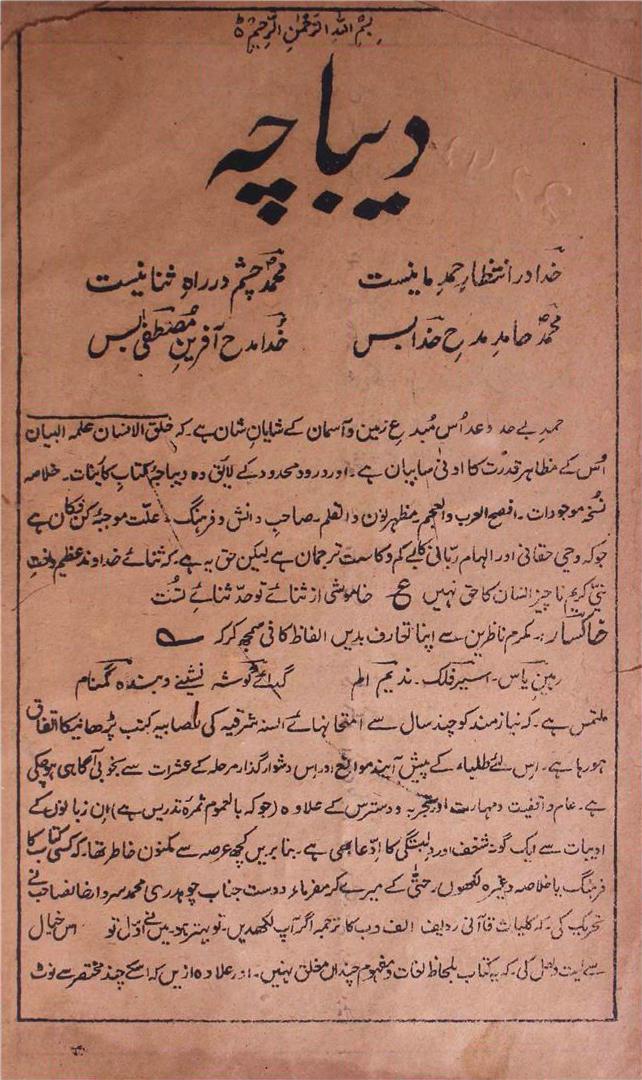 بسم اللہ الرحمٰن الرحیم ط
دیباچہ
خدا در انتظارِ حمدِ ما نیست محمدؐ چشم در راہِ ثنا نیست
محمدؐ حامدِ مدحِ خدا بس خدا مدح آفرینِ مصطفیٰ بس
حمدِ بے حد و عد اُس مُبدعِ زمین و آسمان کے شایانِ شان ہے۔ کہ خلق الانسان علمہ البیان
اُس کے مظاہر قدرت کا ادنیٰ سا بیان ہے۔ اور درود نامحدود کے لایق وہ دیباچۂ کتابِ کائنات۔ خلاصہ
نسخۂ موجودات۔ افصح العرب والعجم۔ مظہرِ نون والقلم۔ صاحبِ دانش و فرہنگ۔ علّت موجبۂ کن فیکان ہے
جو کہ وحی حقانی اور الہام ربانی کا بے کم و کاست ترجمان ہے لیکن حق یہ ہے۔ کہ ثنائے خداوندِ عظیم و نعتِ
نبیّ کریم ناچیز انسان کا حق نہیں ع خاموشی از ثنائے تو حدّ ثنائے تست
خاکسار :۔ مکرم ناظرین سے اپنا تعارف بدیں الفاظ کافی سمجھ کر کہ ؎
رہینِ یاس۔ اسیرِ فلک۔ ندیم الم گدائے گوشہ نشینے و بندہ گمنام
ملتمس ہے۔ کہ نیازمند کو چند سال سے امتحانہائے السنہ شرقیہ کی نصابیہ کتب پڑھانیکا اتفاق
ہو رہا ہے۔ اس لئے طلباء کے پیش آیند موانع اور اس دشوار گذار مرحلہ کے عثرات سے بخوبی آگاہی ہو چکی
ہے۔ عام واقفیت و مہارت اور تجربہ و دسترس کے علاوہ (جو کہ بالعموم ثمرہ تدریس ہے) اِن زبانوں کے
ادبیات سے ایک گونہ شغف اور دلبستگی کا ادّعا بھی ہے۔ بنا بریں کچھ عرصہ سے مکنون خاطر تھا۔ کہ کسی کتاب کا
فرہنگ یا خلاصہ وغیرہ لکھوں۔ حتّٰی کہ میرے کرمفرماء دوست جناب چوہدری محمد سردار خانصاحب نے
تحریک کی۔ کہ کلیات قاآنی ردیف الف و ب کا ترجمہ اگر آپ لکھدیں۔ تو بہتر ہو۔ میں نے اوّل تو اس خیال
سے لیت و لعل کی۔ کہ یہ کتاب بلحاظ لغات و مفہوم چنداں مغلق نہیں۔ اور علاوہ ازیں کہ اسکے چند مختصر سے نوٹ